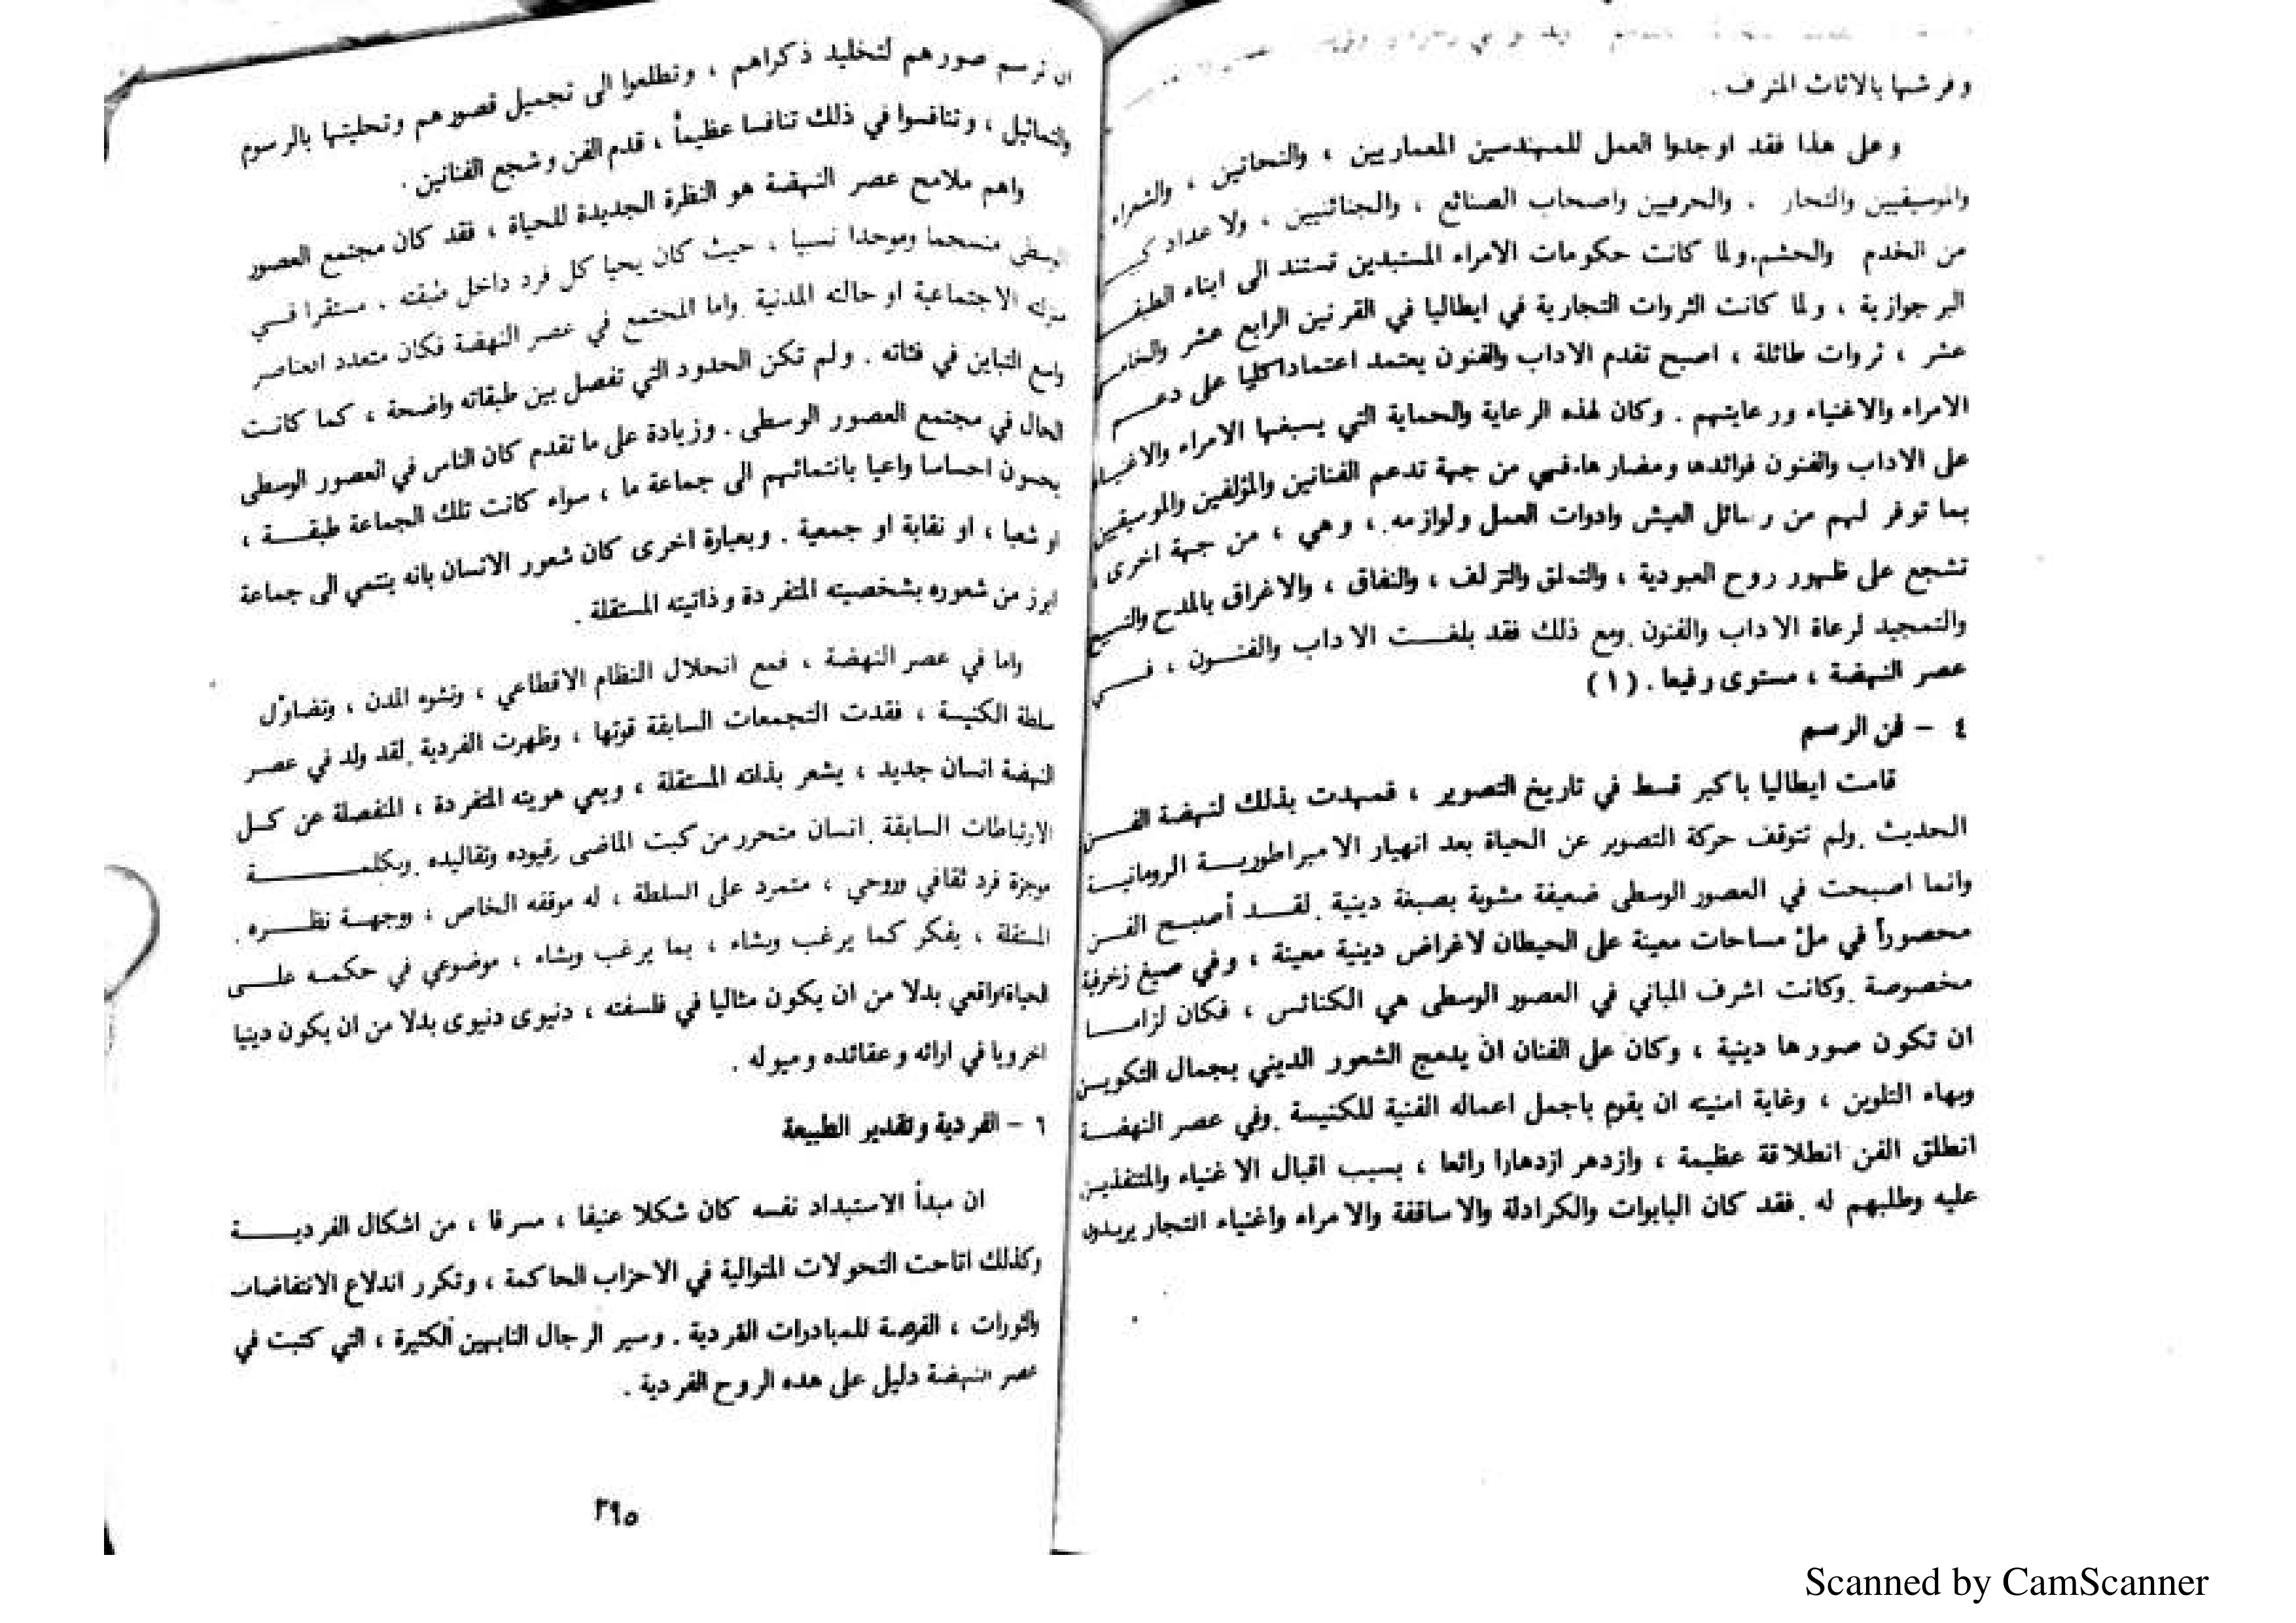 وفرشها بالاثاث المترف .
وعلى هذا فقد اوجدوا العمل للمهندسين المعماريين ، والنحاتين ، والشعراء
والموسيقيين والتجار . والحرفيين واصحاب الصنائع ، والجنائنيين ، ولاعداد
من الخدم والحشم.ولما كانت حكومات الامراء المستبدين تستند الى ابناء
البرجوازية ، ولما كانت الثروات التجارية في ايطاليا في القرنين الرابع عشر
عشر ، ثروات طائلة ، اصبح تقدم الاداب والفنون يعتمد اعتماداكليا على دعــم
الامراء والاغنياء ورعايتهم . وكان لهذه الرعاية والحماية التي يسبغها الامراء والاغنيــاء
على الاداب والفنون فوائدها ومضارها.فهي من جهة تدعم الفنانين والمؤلفين والموسيقيين
بما توفر لهم من وسائل العيش وادوات العمل ولوازمه ، وهي ، من جهة اخرى ،
تشجع على ظهور روح العبودية ، والتملق والتزلف ، والنفاق ، والاغراق بالمدح
والتمجيد لرعاة الاداب والفنون .ومع ذلك فقد بلغــت الاداب والفنــون ، فــي
عصر النهضة ، مستوى رفيعا . (١)
٤ – فن الرسم
قامت ايطاليا باكبر قسط في تاريخ التصوير ، فمهدت بذلك لنهضة الفــن
الحديث .ولم تتوقف حركة التصوير عن الحياة بعد انهيار الامبراطوريــة الرومانيــة
وانما اصبحت في العصور الوسطى ضعيفة مشوبة بصبغة دينية .لقــد أصبح الفــن
محصوراً في ملئ مساحات معينة على الحيطان لاغراض دينية معينة ، وفي صيغ زخرفية
مخصوصة .وكانت اشرف المباني في العصور الوسطى هي الكنائس ، فكان لزامــا
ان تكون صورها دينية ، وكان على الفنان ان يدمج الشعور الديني بجمال التكويــن
وبهاء التلوين ، وغاية امنيته ان يقوم باجمل اعماله الفنية للكنيسة .وفي عصر النهضــة
انطلق الفن انطلاقة عظيمة ، وازدهر ازدهارا رائعا ، بسبب اقبال الاغنياء والمتنفذيــن
عليه وطلبهم له .فقد كان البابوات والكرادلة والاساقفة والامراء واغنياء التجار يريدون
ان ترسم صورهم لتخليد ذكراهم ، وتطلعوا الى تجميل قصورهم وتحليتها بالرسوم
والتماثيل ، وتنافسوا في ذلك تنافسا عظيماً ، قدم الفن وشجع الفنانين .
واهم ملامح عصر النهضة هو النظرة الجديدة للحياة ، فقد كان مجتمع العصور
الوسطى منسجما وموحدا نسبيا ، حيث كان يحيا كل فرد داخل طبقته ، مستقرا فــي
منزلته الاجتماعية او حالته المدنية .واما المجتمع في عصر النهضة فكان متعدد العناصر
واسع التباين في فئاته . ولم تكن الحدود التي تفصل بين طبقاته واضحة ، كما كانــت
الحال في مجتمع العصور الوسطى . وزيادة على ما تقدم كان الناس في العصور الوسطى
يحسون احساسا واعيا بانتمائهم الى جماعة ما ، سواء كانت تلك الجماعة طبقــة ،
او شعبا ، او نقابة او جمعية . وبعبارة اخرى كان شعور الانسان بانه ينتمي الى جماعة
ابرز من شعوره بشخصيته المتفردة وذاتيته المستقلة .
واما في عصر النهضة ، فمع انحلال النظام الاقطاعي ، ونشوء المدن ، وتضاؤل
سلطة الكنيسة ، فقدت التجمعات السابقة قوتها ، وظهرت الفردية .لقد ولد في عصــر
النهضة انسان جديد ، يشعر بذاته المستقلة ، ويعي هويته المتفردة ، المنفصلة عن كــل
الارتباطات السابقة .انسان متحرر من كبت الماضي وقيوده وتقاليده .وبكلمــــة
موجزة فرد ثقافي وروحي ، متمرد على السلطة ، له موقفه الخاص ، ووجهــة نظــره .
المستقلة ، يفكر كما يرغب ويشاء ، بما يرغب ويشاء ، موضوعي في حكمــه علــى
الحياة،واقعي بدلا من ان يكون مثاليا في فلسفته ، دنيوى دنيوى بدلا من ان يكون دينيا
اخرويا في ارائه وعقائده وميوله .
٦ – الفردية وتقدير الطبيعة
ان مبدأ الاستبداد نفسه كان شكلا عنيفا ، مسرفا ، من اشكال الفرديــة
وكذلك اتاحت التحولات المتوالية في الاحزاب الحاكمة ، وتكرر اندلاع الانتفاضات
والثورات ، الفرصة للمبادرات الفردية . وسير الرجال النابهين الكثيرة ، التي كتبت في
عصر النهضة دليل على هده الروح الفردية .
٣٩٥
Scanned by CamScanner